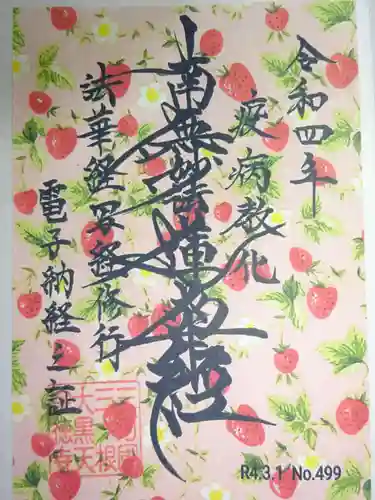 令和四年
疫病教化
南無妙法蓮華経
法華経写経修行
電子納経之証
大黒天
R4.3.1 No.499